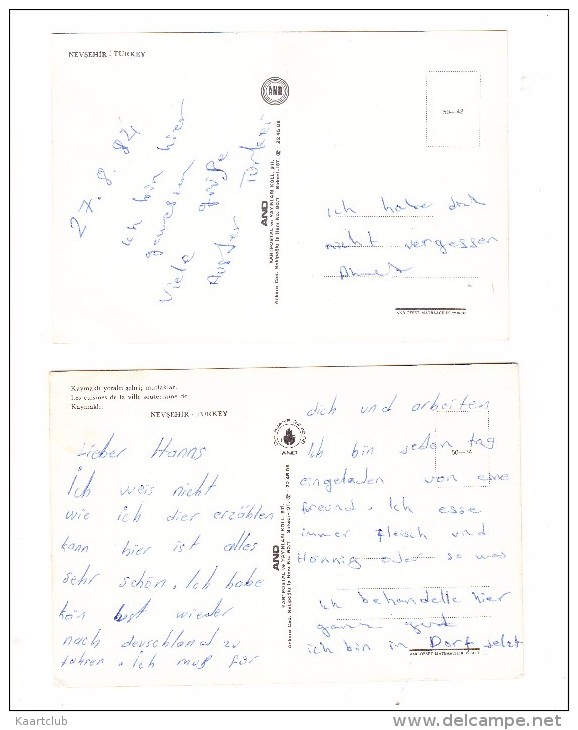 NEVŞEHİR - TURKEY
AND
50-42
27.8.84
Ich bin hier
gewesen
Viele Grüße
Türkei
AND
KARTPOSTAL ve YAYINLARI KOLL. ŞTİ.
22 45 08
ich habe
nicht vergessen
Ahmet
Kaymaklı yeraltı şehri; mutfakları.
Les cuisines de la ville souterraine de
Kaymaklı.
NEVŞEHİR - TURKEY
AND
Lieber Hanns
Ich weis nicht
wie ich dier erzählen
kann hier ist alles
sehr schön. Ich habe
kän wieder
nach deuschland zu
fahren. Ich muß für
AND
KARTPOSTAL ve YAYINLARI KOLL. ŞTİ.
22 45 08
dich und arbeiten
Ich bin jeden tag
eingeladen von eine
freund. Ich esse
immer fleisch und
Honnig oder so was
Ich behandelte hier
ganz gut
ich bin in Dorf jetzt
Kaartclub
www.delcampe.net